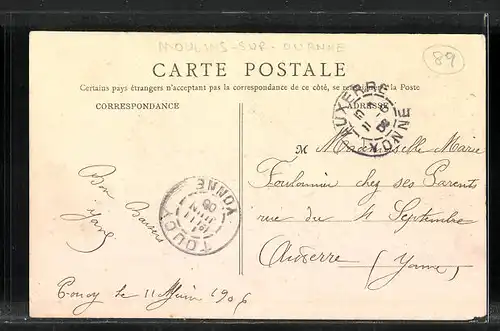 MOULINS-SUR-OUANNE
89
CARTE POSTALE
Certains pays étrangers n'acceptant pas la correspondance de ce côté, se r
à la Poste
CORRESPONDANCE
ADRESSE
AUXERRE
YONNE
TOUCY
YONNE
M Mademoiselle Marie
chez ses Parents
rue du 4 Septembre
Auxerre (Yonne)
Bon Baisers
Toucy le 11 Juin 1906